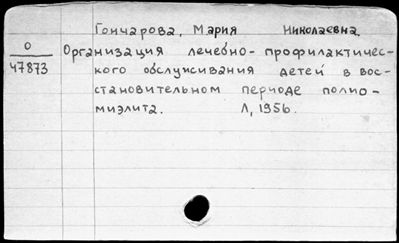 Гончарова, Мария Николаевна.
О
47873
Организация лечебно-профилактичес-
кого обслуживания детей в вос-
становительном периоде полио-
миэлита. Л, 1956.